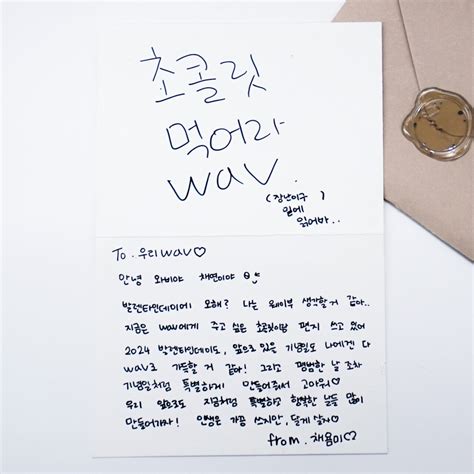 초콜릿
먹어라
wav
(장난이구 )
밑에
읽어봐..
To. 우리 wav♡
안녕 와비야 채연이야
발렌타인데이에 모해? 나는 웨이부 생각할거 같아..
지금은 wav에게 주고 싶은 초콜릿이랑 편지 쓰고 있어
2024 발렌타인데이도, 앞으로 있을 기념일도 나에겐 다
wav로 가득할 거 같아! 그리고 평범한 날 조차
기념일처럼 특별하게 만들어줘서 고마워♡
우리 앞으로도 지금처럼 특별하고 행복한 날들 많이
만들어가자! 인생은 가끔 쓰지만, 달게 살자♡
from. 채욤이♡